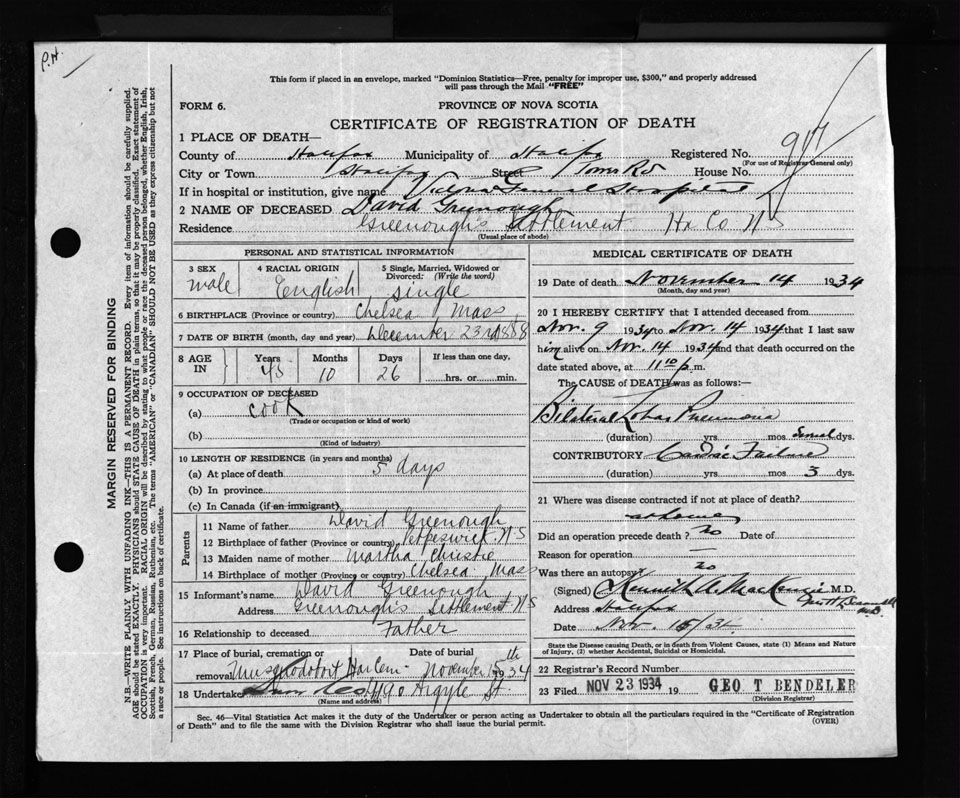 P.H.
This form if placed in an envelope, marked "Dominion Statistics—Free, penalty for improper use, $300," and properly addressed
will pass through the Mail "FREE"
FORM 6.
PROVINCE OF NOVA SCOTIA
CERTIFICATE OF REGISTRATION OF DEATH
1 PLACE OF DEATH—
County of Halifax Municipality of Halifax Registered No. 917
(For use of Registrar General only)
City or Town Halifax Street Tower Rd House No.
If in hospital or institution, give name Victoria General Hospital
2 NAME OF DECEASED David Greenough
Residence Greenough Settlement Hx Co NS
(Usual place of abode)
PERSONAL AND STATISTICAL INFORMATION
3 SEX male
4 RACIAL ORIGIN English
5 Single, Married, Widowed or Divorced: (Write the word) single
6 BIRTHPLACE (Province or country) Chelsea Mass
7 DATE OF BIRTH (month, day and year) December 23rd 1888
8 AGE IN Years 45 Months 10 Days 26 If less than one day, hrs. or min.
9 OCCUPATION OF DECEASED
(a) cook
(Trade or occupation or kind of work)
(b)
(Kind of industry)
10 LENGTH OF RESIDENCE (in years and months)
(a) At place of death 5 days
(b) In province
(c) In Canada (if an immigrant)
Parents
11 Name of father David Greenough
12 Birthplace of father (Province or country) Petpeswick NS
13 Maiden name of mother Martha Christie
14 Birthplace of mother (Province or country) Chelsea Mass
15 Informant's name David Greenough
Address Greenough's Settlement NS
16 Relationship to deceased Father
17 Place of burial, cremation or Date of burial
removal Musquodoboit Harbour November 15th 1934
18 Undertaker 90 Argyle St
(Name and address)
MEDICAL CERTIFICATE OF DEATH
19 Date of death November 14 1934
(Month, day and year)
20 I HEREBY CERTIFY that I attended deceased from
Nov. 9 1934 to Nov. 14 1934 that I last saw
him alive on Nov. 14 1934 and that death occurred on the
date stated above, at 11 10 p.m.
The CAUSE OF DEATH was as follows:
Bilateral Lobar Pneumonia
(duration) yrs. mos dys.
CONTRIBUTORY Cardiac Failure
(duration) yrs. mos 3 dys.
21 Where was disease contracted if not at place of death?
at home
Did an operation precede death? no Date of
Reason for operation —
Was there an autopsy? no
(Signed) Kenneth A MacKenzie M.D.
Address Halifax
Date Nov. 15/34.
State the Disease causing Death, or in Deaths from Violent Causes, state (1) Means and Nature of Injury, (2) whether Accidental, Suicidal or Homicidal.
22 Registrar's Record Number
23 Filed NOV 23 1934 19 GEO T BENDELER
(Division Registrar)
Sec. 46—Vital Statistics Act makes it the duty of the Undertaker or person acting as Undertaker to obtain all the particulars required in the "Certificate of Registration
of Death" and to file the same with the Division Registrar who shall issue the burial permit.
(OVER)
MARGIN RESERVED FOR BINDING
N.B.—WRITE PLAINLY WITH UNFADING INK—THIS IS A PERMANENT RECORD. Every item of information should be carefully supplied.
AGE should be stated EXACTLY. PHYSICIANS should STATE CAUSE OF DEATH in plain terms, so that it may be properly classified. Exact statement of
OCCUPATION is very important. RACIAL ORIGIN will be described by stating to what people or race the deceased person belonged, whether English, Irish,
Scottish, French, German, Russian, Ruthenian, etc. The terms "AMERICAN" or "CANADIAN" SHOULD NOT BE USED as they express citizenship but not
a race or people. See instructions on back of certificate.